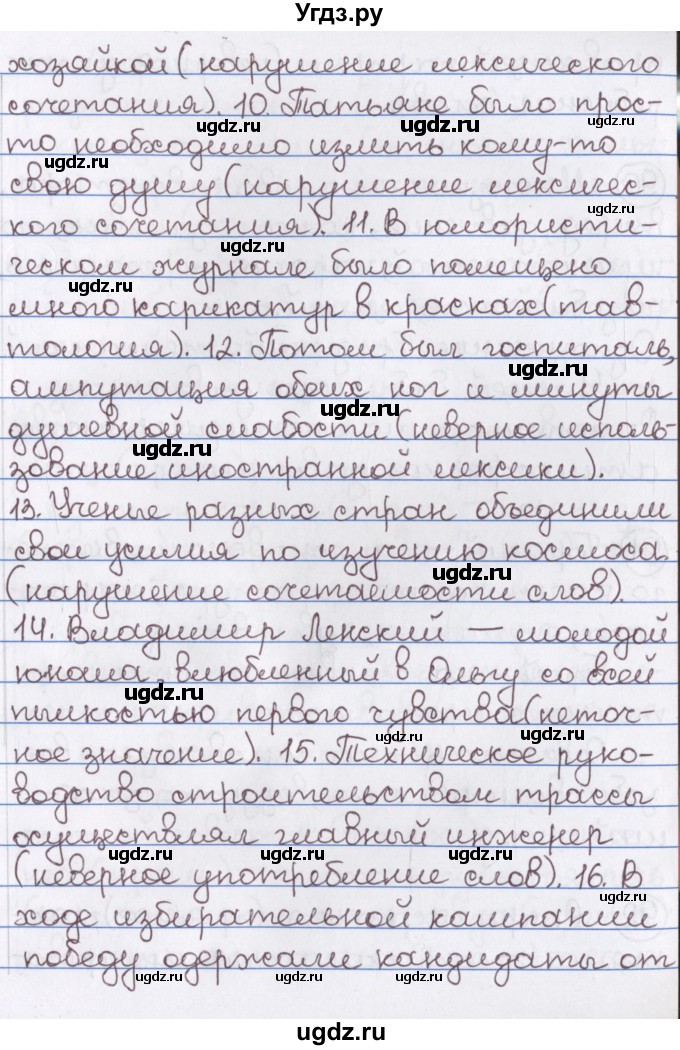 Угдз.ру
хозяйкой (нарушение лексического
сочетания). 10. Татьяне было прос-
то необходимо излить кому-то
свою душу (нарушение лексичес-
кого сочетания). 11. В юмористи-
ческом журнале было помещено
много карикатур в красках (тав-
тология). 12. Потом был госпиталь,
ампутация обеих ног и минуты
душевной слабости (неверное исполь-
зование иностранной лексики).
13. Ученые разных стран объединили
свои усилия по изучению космоса
(нарушение сочетаемости слов).
14. Владимир Ленский — молодой
юноша, влюбленный в Ольгу со всей
пылкостью первого чувства (неточ-
ное значение). 15. Техническое руко-
водство строительством трассы
осуществлял главный инженер
(неверное употребление слов). 16. В
ходе избирательной кампании
победу одержали кандидаты от
ugdz.ru